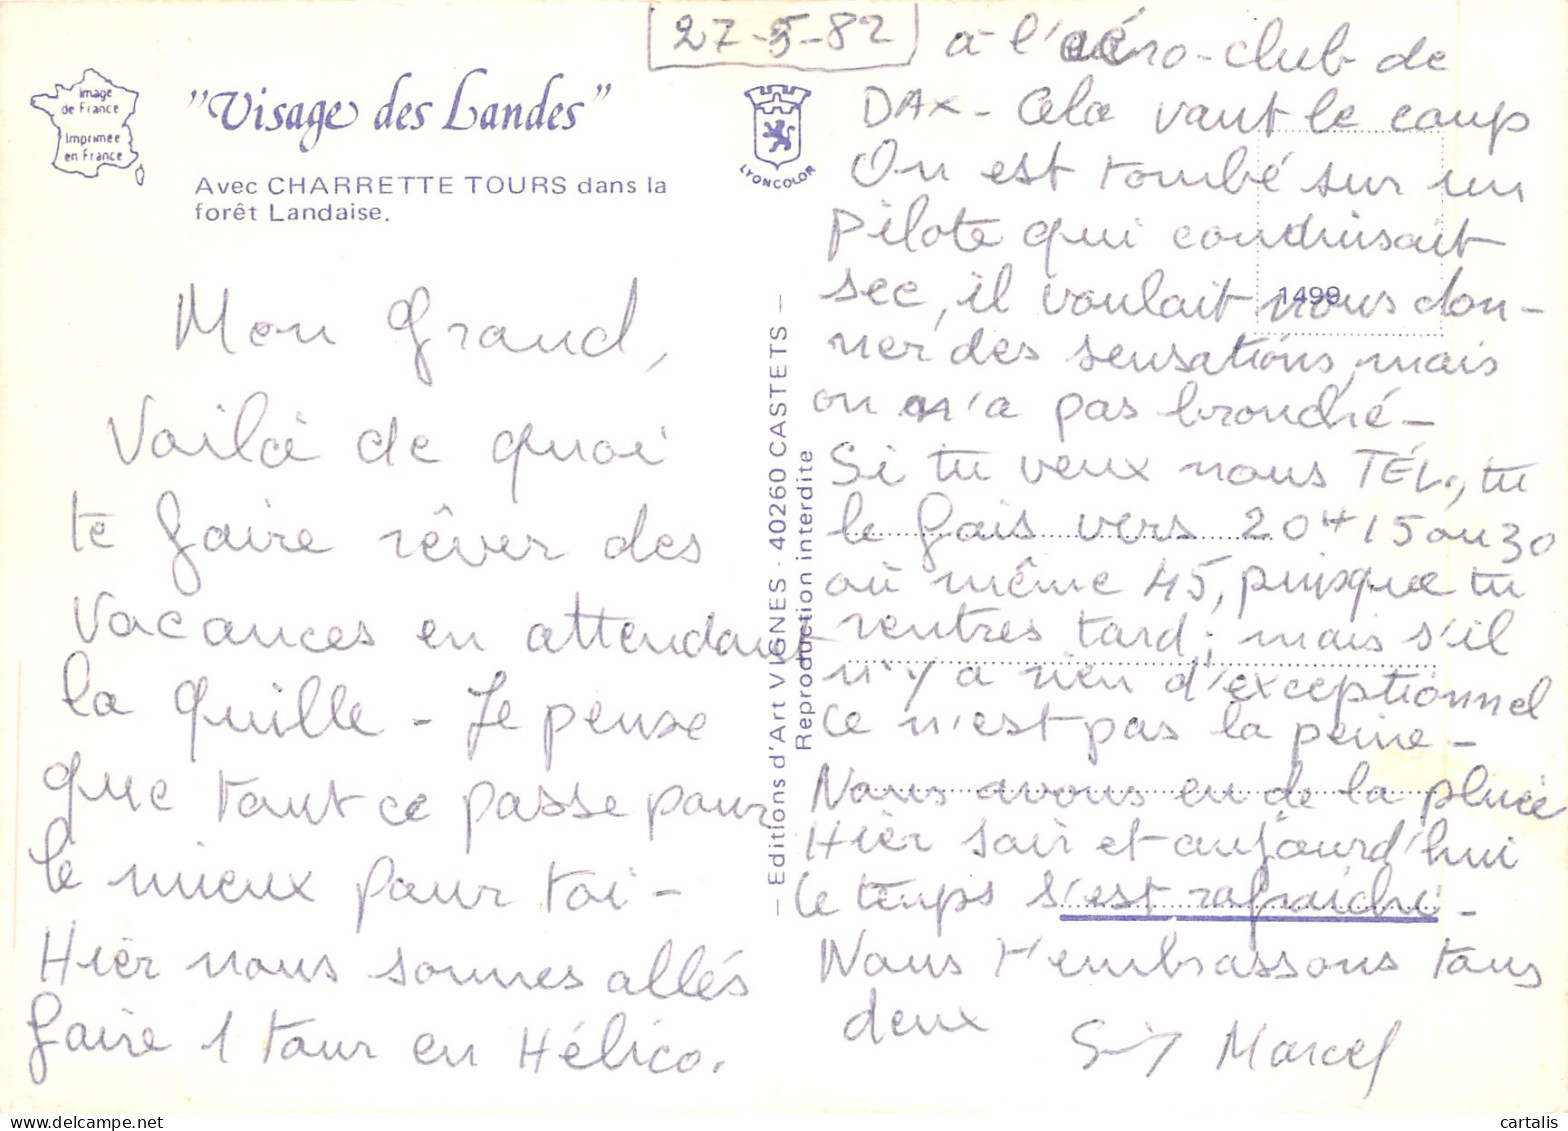 27-5-82
Image
de France
Imprimée
en France
"Visage des Landes"
Avec CHARRETTE TOURS dans la
forêt Landaise.
LYONCOLOR
Mon Grand,
Voilà de quoi
te faire rêver des
vacances en attendant
la quille - Je pense
que tout ce passe pour
le mieux pour toi -
Hier nous sommes allés
faire 1 tour en Hélico.
— Editions d'Art VIGNES - 40260 CASTETS —
Reproduction interdite
1499
à l'aéro-club de
DAX - Cela vaut le coup
On est tombé sur un
pilote qui conduisait
sec, il voulait nous don-
ner des sensations, mais
on n'a pas bronché -
Si tu veux nous TÉL., tu
le fais vers 20H15 ou 30
ou même 45, puisque tu
rentres tard; mais s'il
n'y a rien d'exceptionnel
ce n'est pas la peine -
Nous avons eu de la pluie
Hier soir et aujourd'hui
le temps s'est rafraichi -
Nous t'embrassons tous
deux
Marcel
cartalis